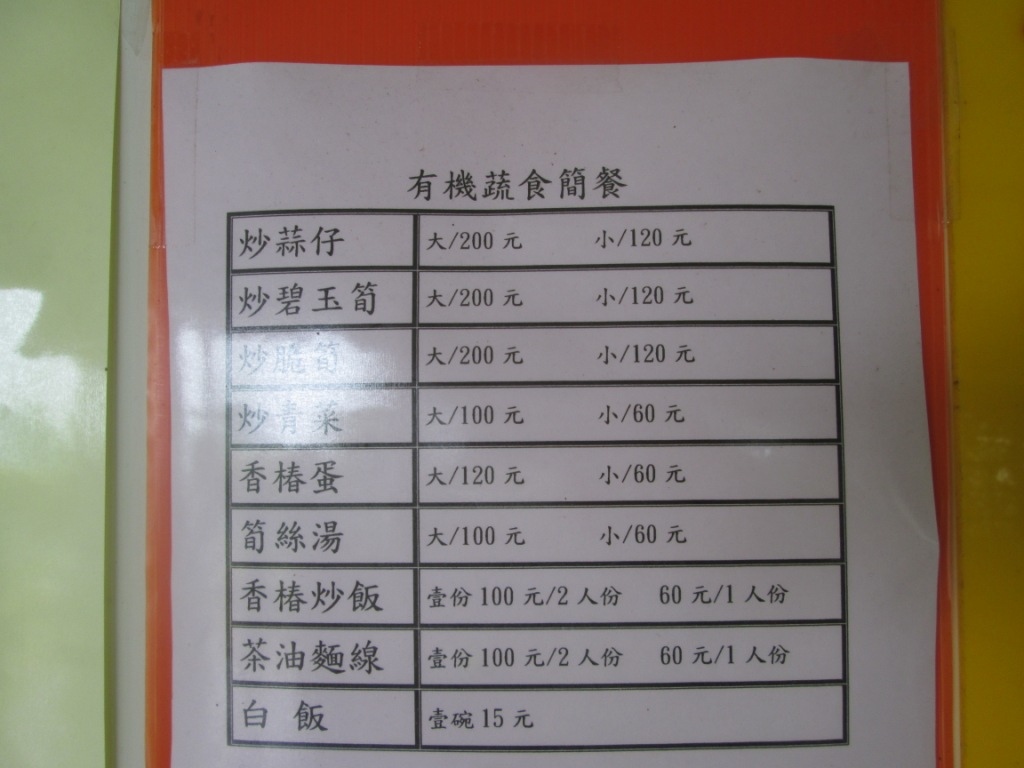 有機蔬食簡餐
炒蒜仔 大/200 元 小/120 元
炒碧玉筍 大/200 元 小/120 元
炒脆筍 大/200 元 小/120 元
炒青菜 大/100 元 小/60 元
香椿蛋 大/120 元 小/60 元
筍絲湯 大/100 元 小/60 元
香椿炒飯 壹份 100 元/2 人份 60 元/1 人份
茶油麵線 壹份 100 元/2 人份 60 元/1 人份
白 飯 壹碗 15 元